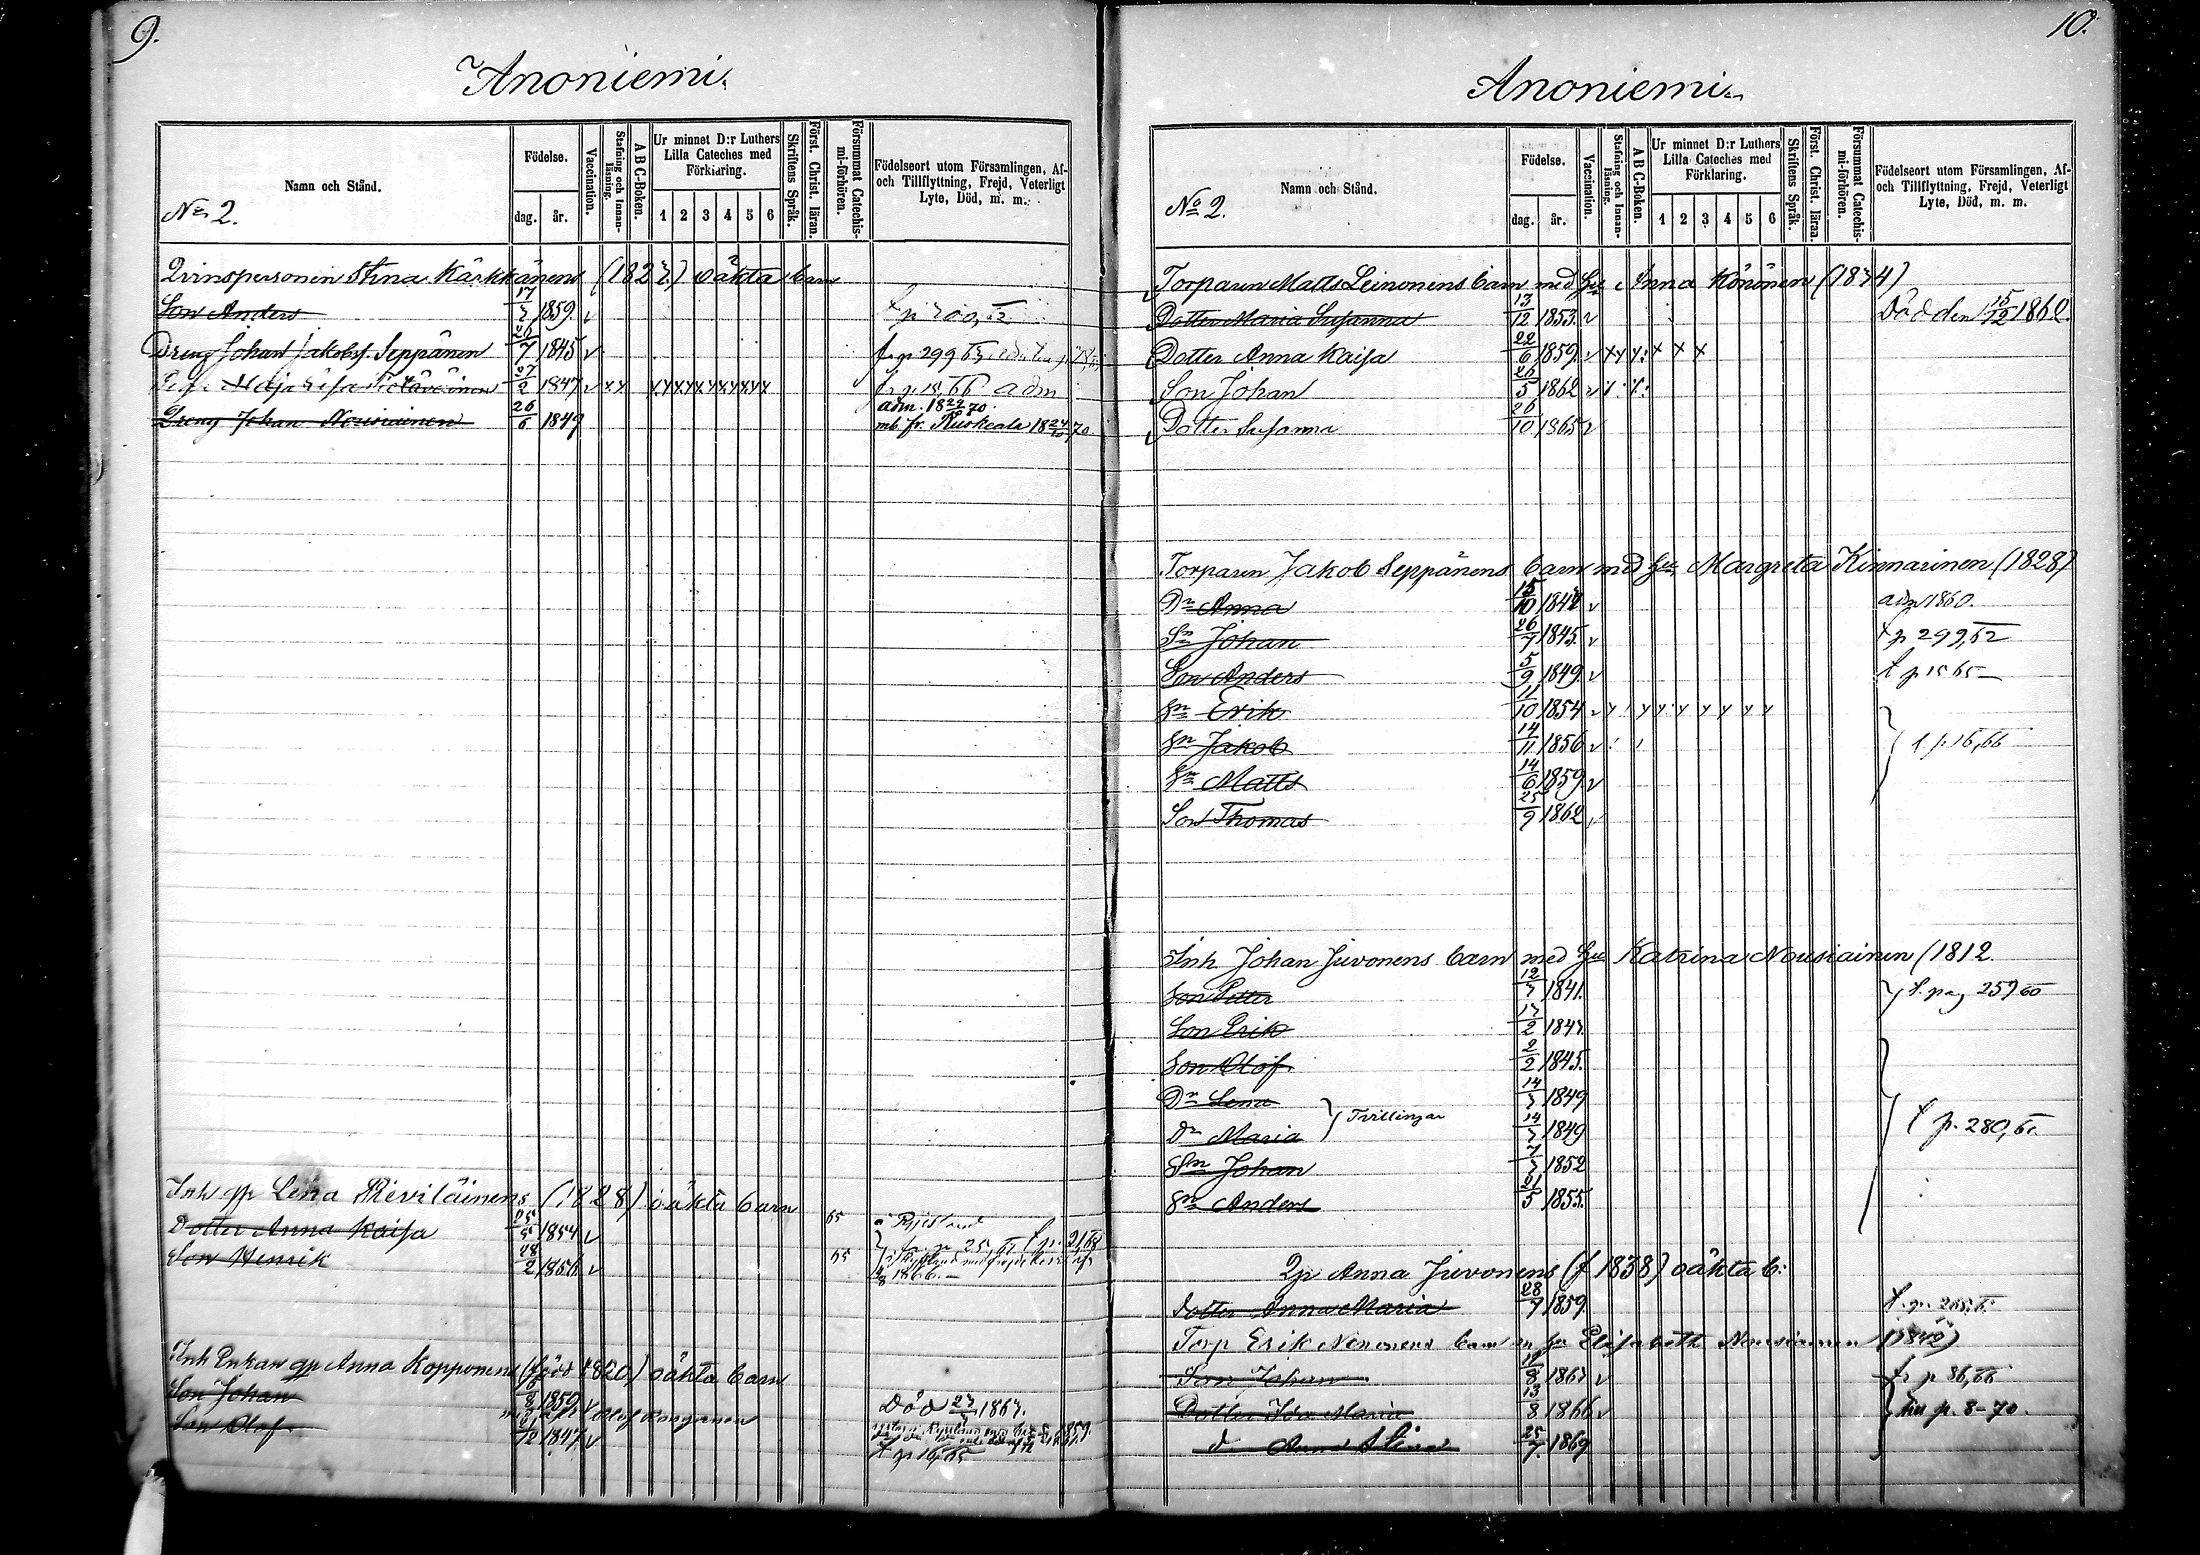 9.
Anoniemi.
Namn och Stånd.
No 2.
Födelse.
dag. år.
Vaccination.
Stafning och Innanläsning.
A B C-Boken.
Ur minnet D:r Luthers Lilla Cateches med Förklaring.
1 2 3 4 5 6
Skriftens Språk.
Först. Christ. läran.
Försummat Catechismi-förhören.
Födelseort utom Församlingen, Af- och Tillflyttning, Frejd, Veterligt Lyte, Död, m. m.
Stina Kärkkänens oäkta barn
Son Anders 1859 v
Dreng Johan Jakobss. Seppänen 26/7 1845 v fr p 299
Maja Lisa 27/2 1847 v x x x x x x x x x x adm
Dreng Johan Nousiainen 26/6 1849 adm. 18 22/10 70.
mb fr. Ruskeala 18 24/10 70.
Inh qp Lena Rieviläinens (1828) oäkta barn
Dotter Anna Kaisa 25/5 1854 v 65
Son Henrik 28/2 1856 v 65
1866.
Inh Enkan qp Anna Kopponens (född 1820) oäkta barn
Son Johan 1859 v Död 1867.
Son Olof 1847 v t p 16,65
10.
Anoniemi.
Namn och Stånd.
No 2.
Födelse.
dag. år.
Vaccination.
Stafning och Innanläsning.
A B C-Boken.
Ur minnet D:r Luthers Lilla Cateches med Förklaring.
1 2 3 4 5 6
Skriftens Språk.
Först. Christ. läran.
Försummat Catechismi-förhören.
Födelseort utom Församlingen, Af- och Tillflyttning, Frejd, Veterligt Lyte, Död, m. m.
Torparen Matts Leinonens barn med hu Anna Könönen (1834)
Dotter Maria Susanna 13/12 1853. v Död den 15/12 1860.
Dotter Anna Kaisa 22/6 1859 v x x x x x x
Son Johan 26/5 1862 v
Dotter Susanna 26/10 1865 v
Torparen Jakob Seppänens barn med hu Margreta Kinnarinen (1828)
Dr Anna 15/10 1842 v adm 1860.
Sn Johan 26/7 1845. v t p 299,62
Son Anders 5/9 1849. v t p 15 65
Sn Erik 11/10 1854 v
Sn Jakob 14/11 1856 v t p 16,66
Sn Matts 14/6 1859 v
Son Thomas 25/9 1862 v
Inh Johan Juvonens barn med hu Katrina Nousiainen (1812.
Son Petter 12/3 1841. t. pag 257 60
Son Erik 13/2 1843.
Son Olof 2/2 1845.
Dr Lena 14/3 1849
Tvillingar
Dr Maria 14/3 1849 t p. 280,61.
Sn Johan 7/3 1852
Sn Anders 21/5 1855.
Qp Anna Juvonens (f 1838) oäkta b:
Dotter Anna Maria 28/7 1859.
Torp Erik Nenonens barn m hu Elisabeth Nousiainen (1842)
Son Johan 1863 v fr p 86,66
Dotter Ida Maria 13/8 1866 v p. 8-70.
d Anna Stina 25/7 1869